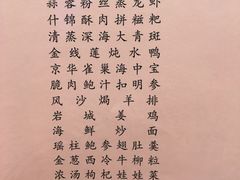 蒜蓉粉丝蒸龙虾
什锦酥肉拼糍粑
清蒸深海大青斑
金线莲炖水鸭
京华雀巢海中宝
脆汁扣参
风沙羊排
岩城姜鸡
海鲜炒面
瑶柱鲍参翅肚羹
金葱西冷牛柳粒
浓汤枸杞娃娃菜